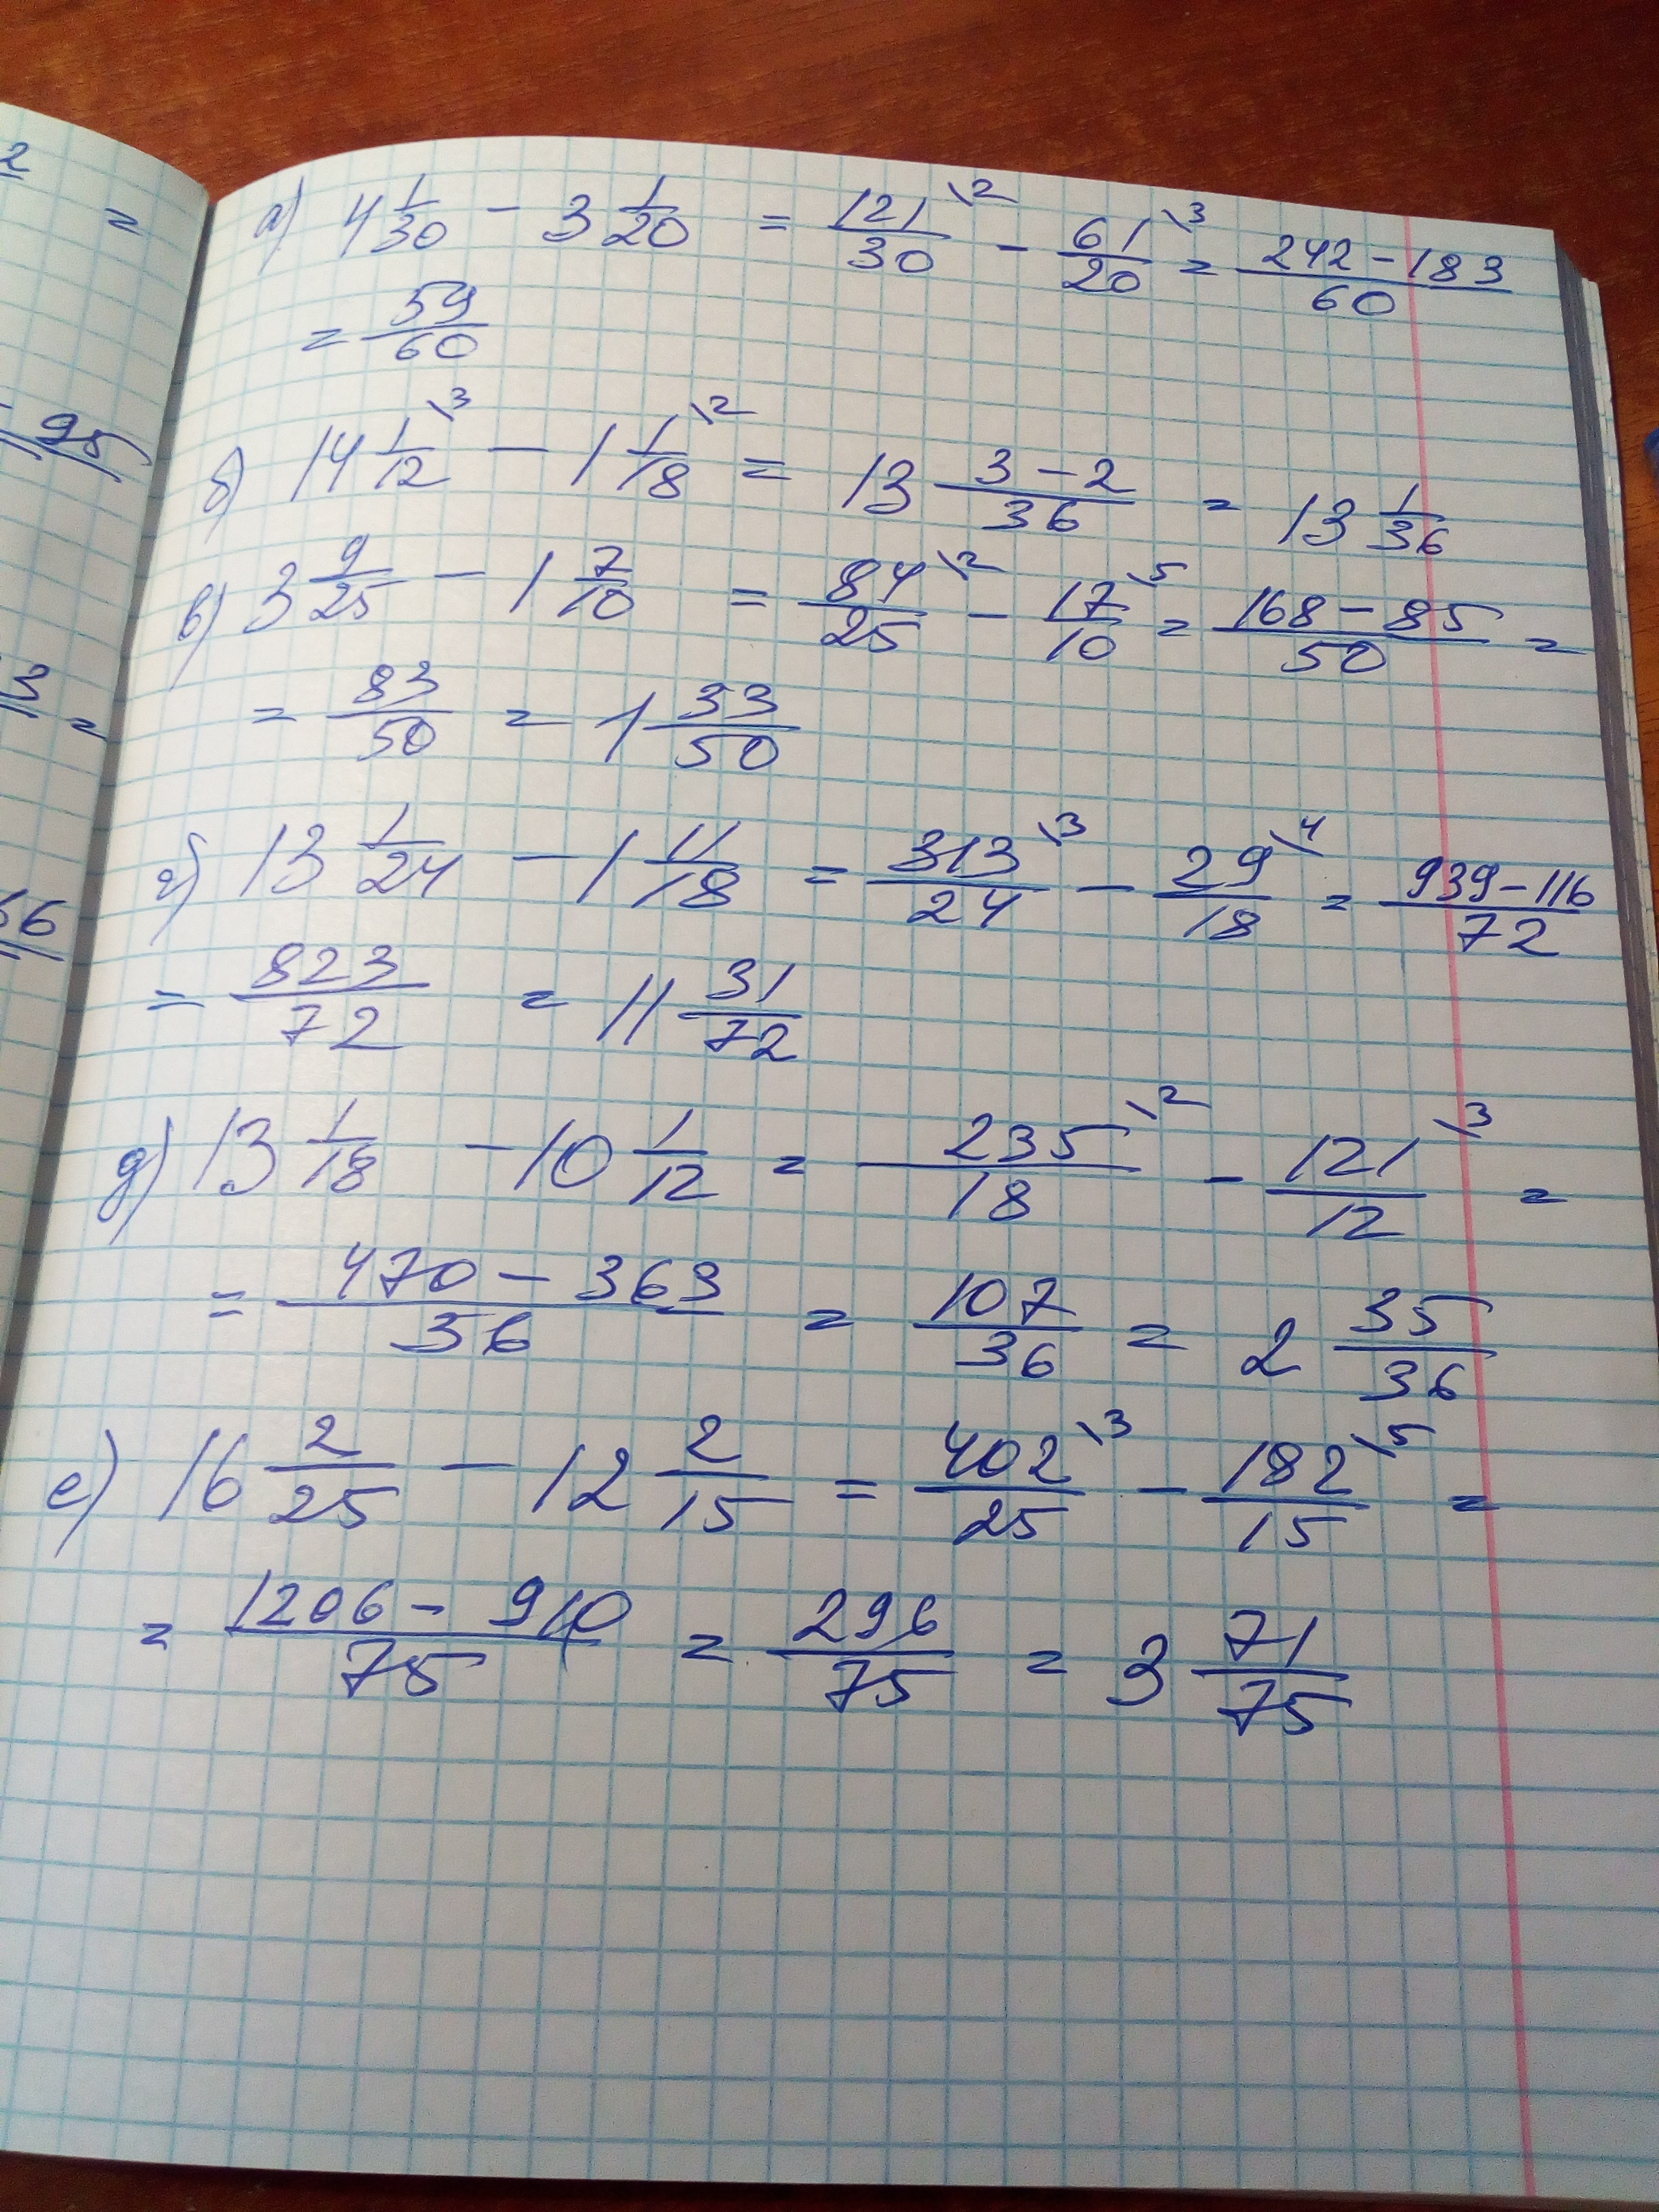 2
=
95
3 =
66
а) 4 1/30 - 3 1/20 = 121\2/30 - 61\3/20 = 242-183/60
= 59/60
б) 14 1\3/12 - 1 1\2/18 = 13 3-2/36 = 13 1/36
в) 3 9/25 - 1 7/10 = 84\2/25 - 17\5/10 = 168-85/50 =
= 83/50 = 1 33/50
г) 13 1/24 - 1 11/18 = 313\3/24 - 29\4/18 = 939-116/72
= 823/72 = 11 31/72
д) 13 1/18 - 10 1/12 = 235\2/18 - 121\3/12 =
= 470-363/36 = 107/36 = 2 35/36
е) 16 2/25 - 12 2/15 = 402\3/25 - 182\5/15 =
= 1206-910/75 = 296/75 = 3 71/75